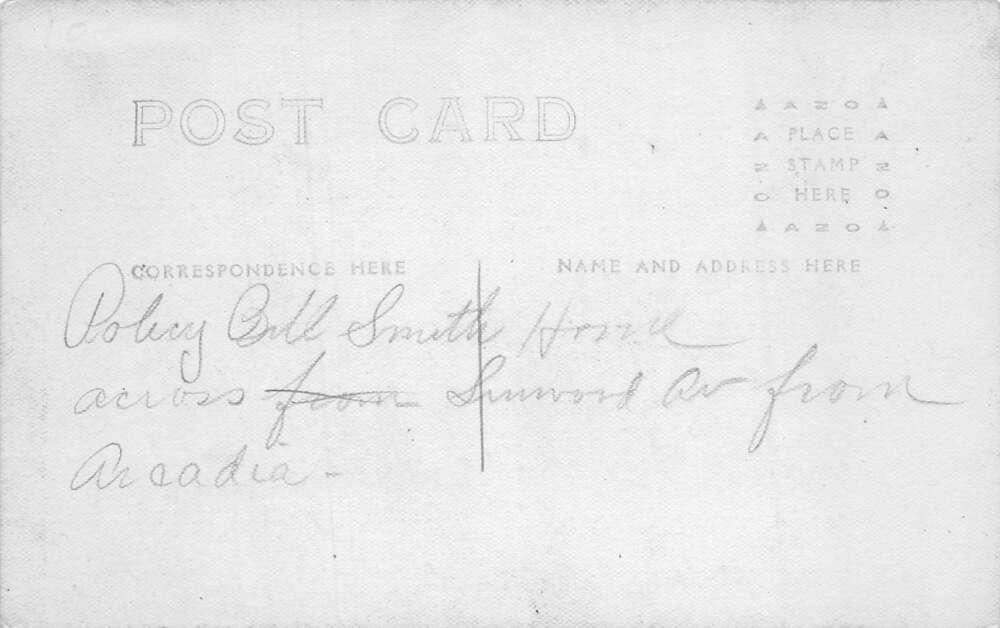 POST CARD
▲ A Z O ▲
A PLACE A
Z STAMP Z
O HERE O
▲ A Z O ▲
CORRESPONDENCE HERE
NAME AND ADDRESS HERE
Policy Bill Smith Home
across from Linwood Av from
Arcadia -